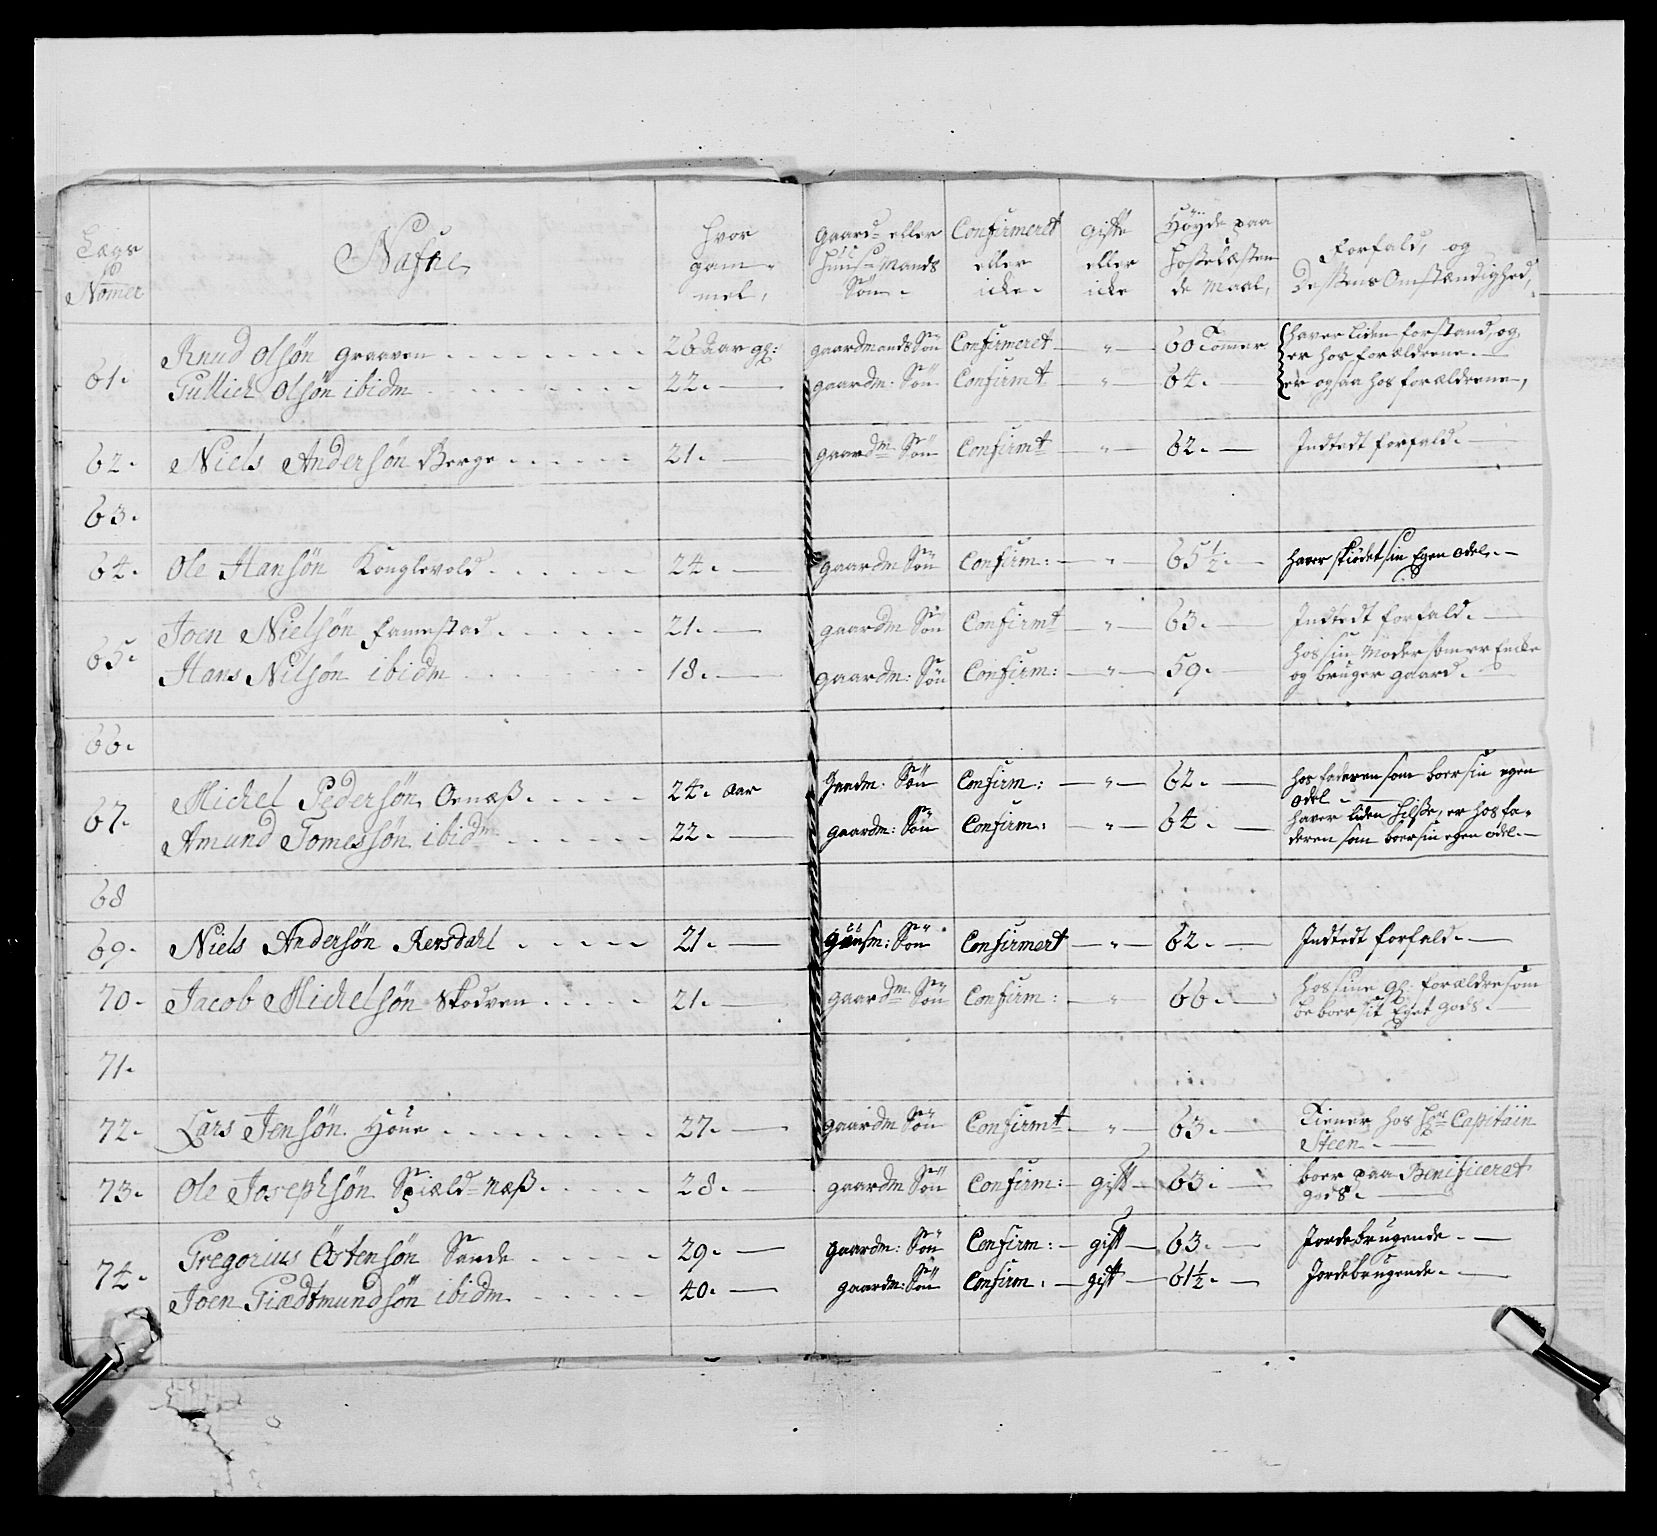 Lægs Nomer | Nafne | Hvor gammel, | Gaard- eller Huus-Mands Søn. | Confirmeret eller icke. | gifte eller icke | Høyde paa Hosselæsten de Maal, | Forfald, og Dessens Omstændighed,
61. Knud Olsøn Graaven | 26 Aar gl: | gaardmands Søn | Confirmeret | " | 60 Tomer | haver liden forstand, og er hos forældrene.
Gullich Olsøn ibidm | 22. | gaardm: Søn | Confirmt | " | 64. | er ogsaa hos forældrene,
62. Niels Andersøn Berge | 21. | gaardm Søn | Confirmt | " | 62. | Indtedt forfald.
63.
64. Ole Hansøn Konglevold | 24. | gaardm Søn | Confirm: | " | 65½. | haver skiødet sin Egen odel.
65. Joen Nielsøn famestad | 21. | gaardm Søn | Confirmt | " | 63. | Indtedt forfald.
Hans Nilsøn ibidm | 18. | gaardm: Søn | Confirm: | " | 59. | hos sin Moder som er Encke og bruger gaard.
66.
67. Michel Pedersøn Ornæß | 24. aar | gaardm: Søn | Confirm: | " | 62. | hos faderen som boer sin egen odel.
Amund Tomessøn ibidm | 22. | gaardm: Søn | Confirm: | " | 64. | haver liden hilse, er hos faderen som boer sin egen odel.
68
69. Niels Andersøn Rersdahl | 21. | Huusm: Søn | Confirmert | " | 62. | Indtedt forfald.
70. Jacob Michelsøn Skodven | 21. | gaardm Søn | Confirm: | " | 66. | hos sine gl: forældre som beboer sit Eget gods.
71.
72. Lars Jensøn Houe | 27. | gaardm Søn | Confirmt | " | 63. | Tiener hos Hr Capitain Steen.
73. Ole Josephsøn Spiæld-næß | 28. | gaardm Søn | Confirm: | gift | 63. | boer paa Benificeret gods.
74. Gregorius Østensøn Sande | 29. | gaardm: Søn | Confirm: | gift | 63. | Jordebrugende.
Joen Giædtmundsøn ibidm | 40. | gaardm: Søn | Confirm. | gift | 61½. | Jordebrugende.